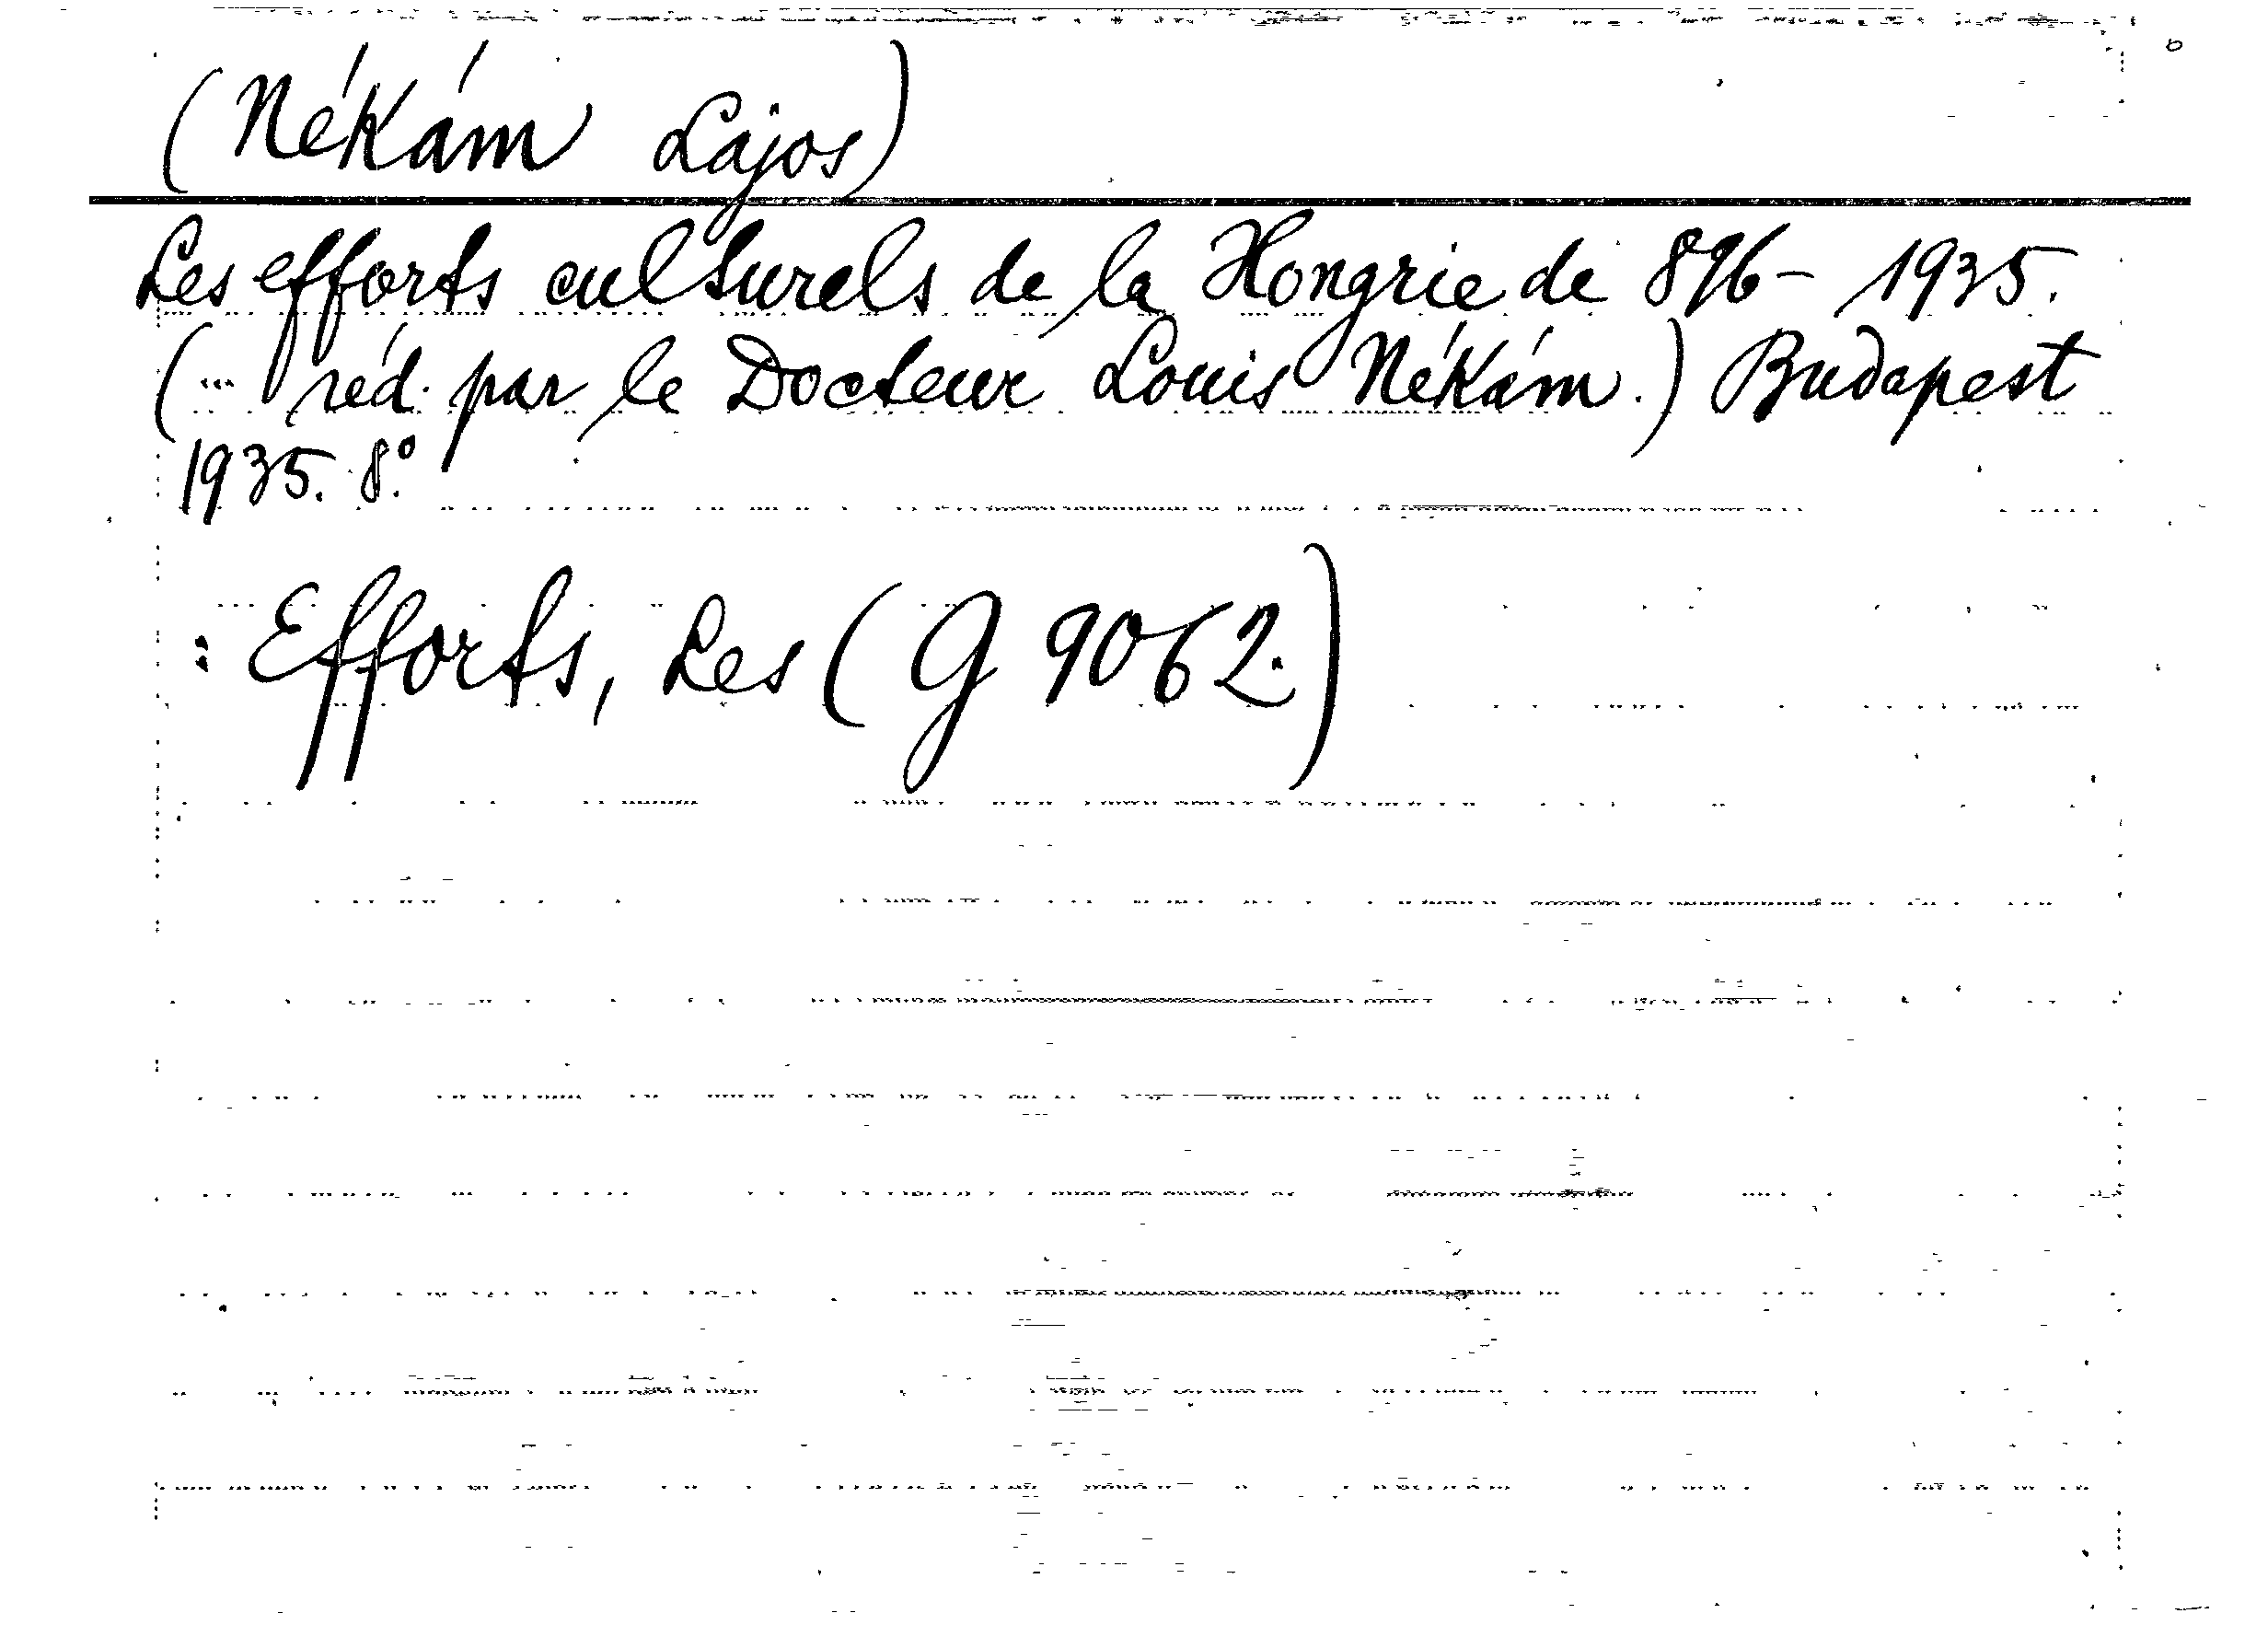 (Nékám Lajos)
Les efforts culturels de la Hongrie de 896- 1935.
(... réd. par le Docteur Louis Nékám.) Budapest
1935. 8.°
: Efforts, Les (G 9062.)